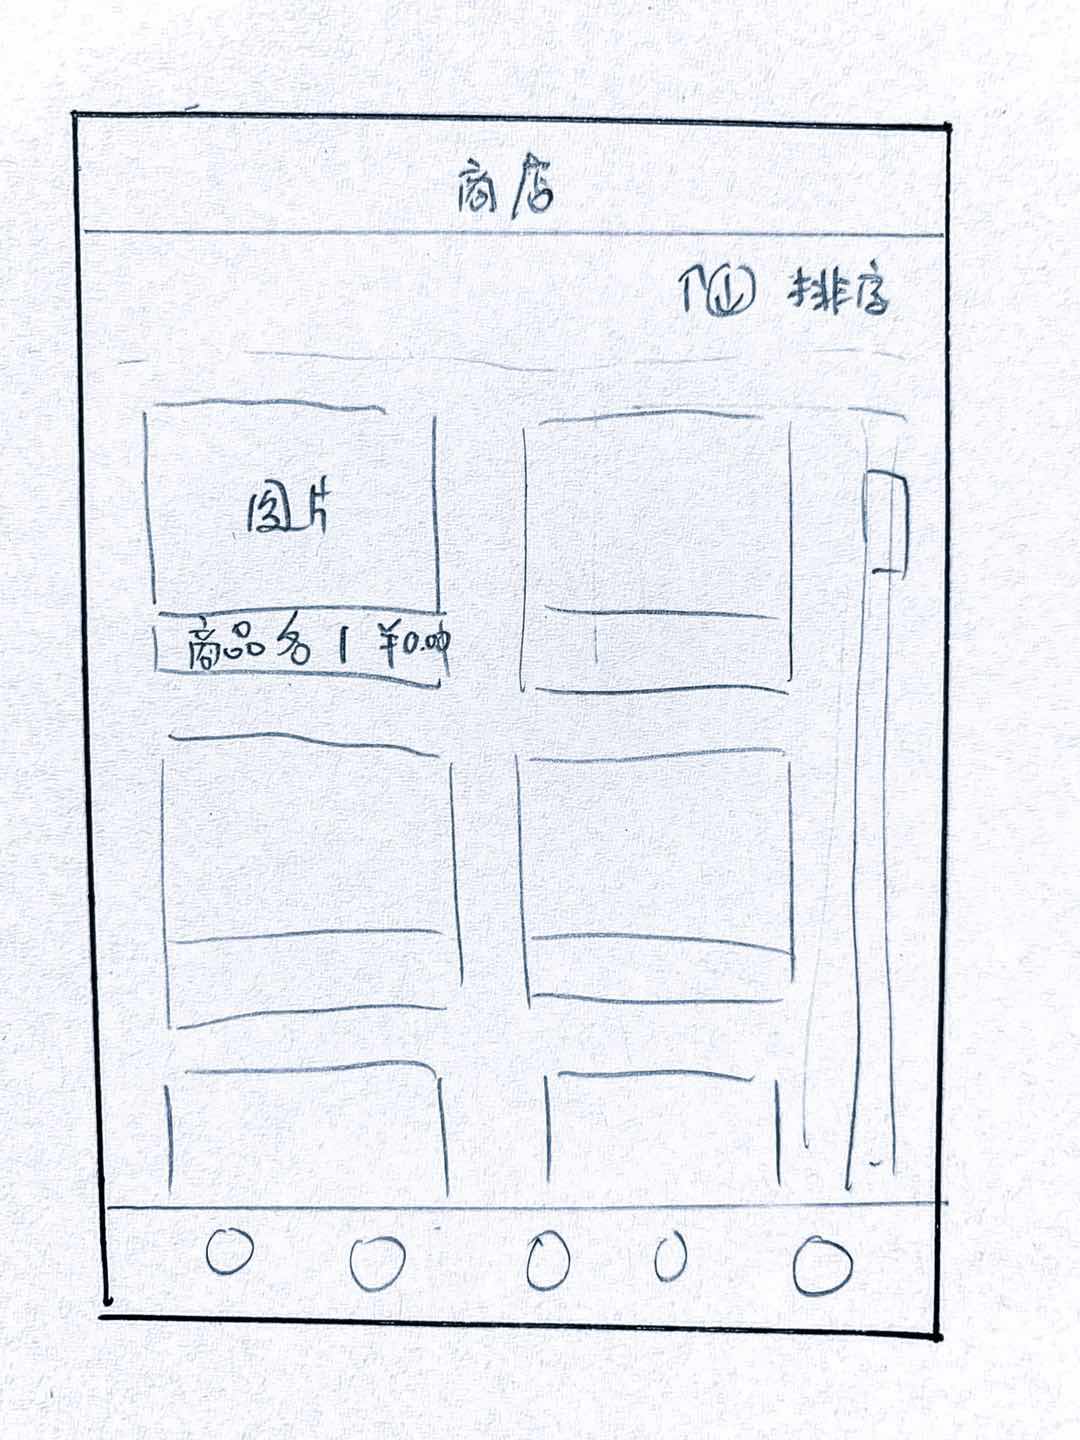 商店
↑↓ 排序
图片
商品名 | ¥0.00